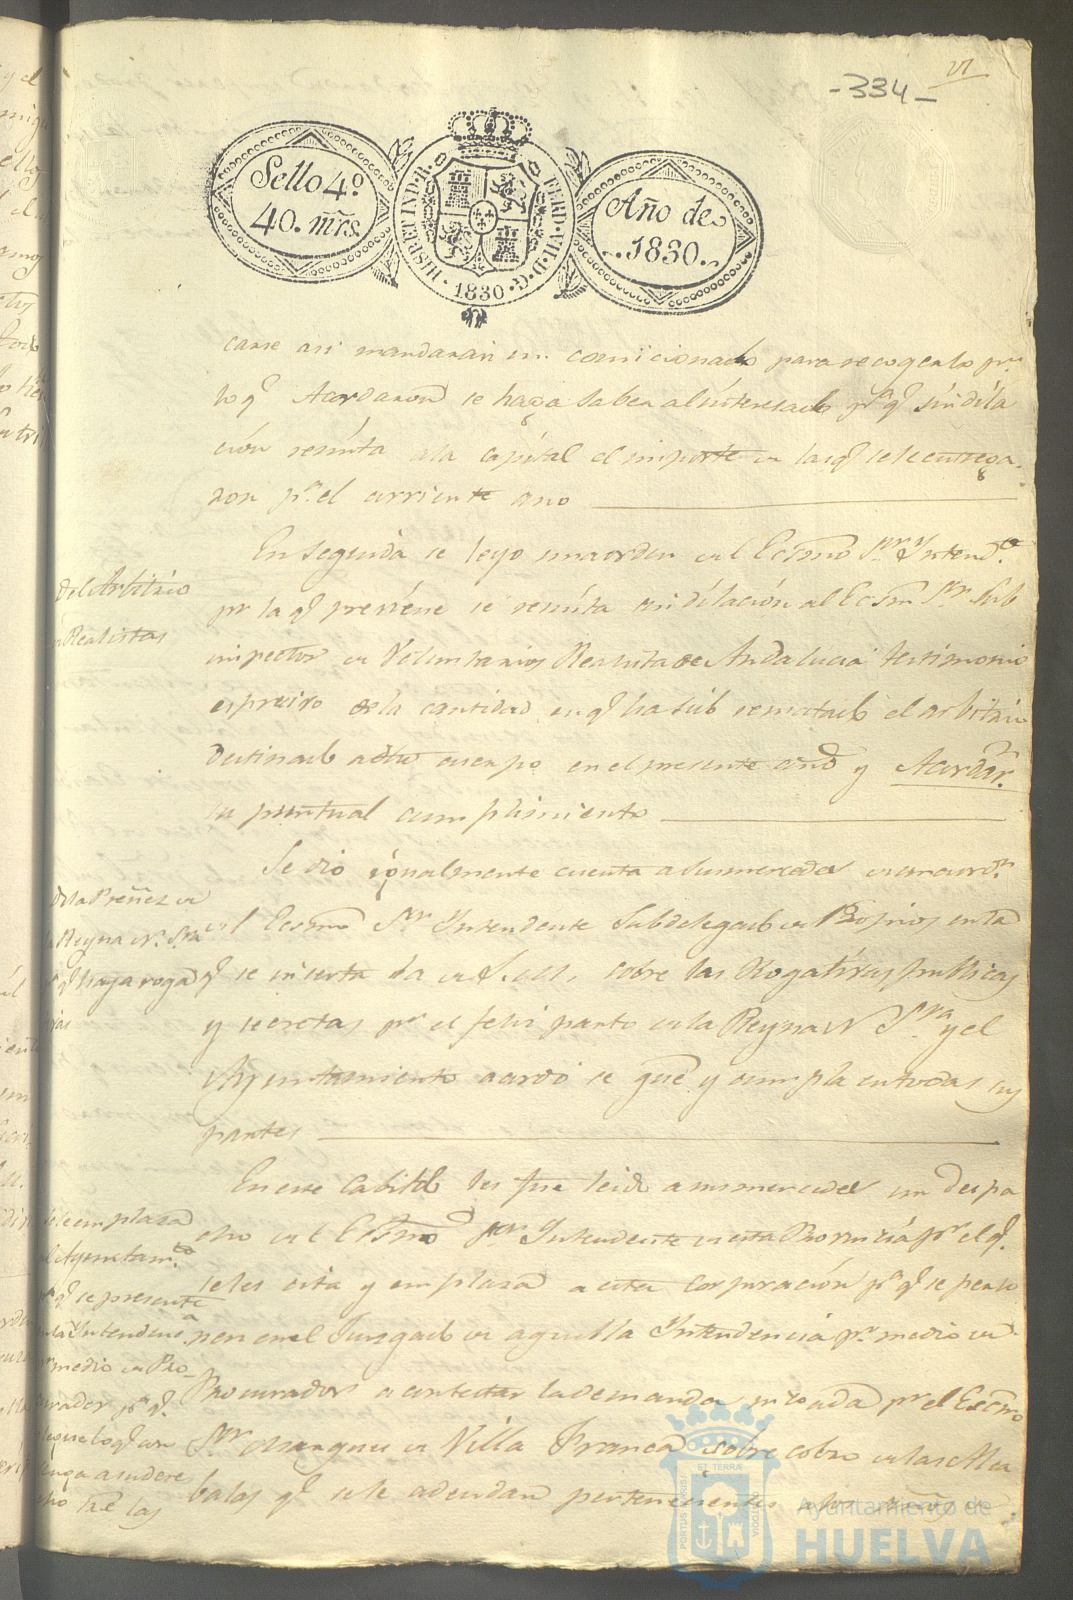 -334-
Sello 4.º
40. mrs.
HISP. ET IND. R.
FERD. VII. D. G.
1830
Año de
1830.
carse asi mandaran un comicionado para recogerlo pr.
lo q.e Acordaron se haga saber al interesado pa. q.e sin dila
cion remita a la capital el importe de las q.e se le entrega
ron pa. el corriente ano
del Arbitrio
de Realistas
En seguida se leyo una orden del Ecsmo Sor. Intend.te
pr la q.e previene se remita sin dilacion al Ecsmo Sor. Sub
inspector de Voluntarios Realistas de Andalucia testimonio
espresivo de la cantidad en q.e ha sido rematado el arbitrio
destinado a dho cuerpo en el presente año y Acordar.n
su puntual cumplimiento
de la Preñez de
la Reyna N. Sra
pa q.e haya rogati
vas
Se dio igualmente cuenta a sus mercedes de una ord.n
del Ecsmo Sor Intendente Subdelegado de Propios en la
q.e se inserta la de S. M. sobre las Rogativas publicas
y secretas pr. el feliz parto de la Reyna N Sra y el
Ayuntamiento acordó se gue y cumpla en todas sus
partes
Se emplaza
al Ayuntam.to
pa q.e se presente
en la Intendencia
pr medio de Pro-
curador pa. q.e
esponga lo q.e con
venga a su dere
cho sre las
En este Cabildo les fue leido a sus mercedes un despa
cho del Ecsmo Sor Intendente de esta Provincia pr. el q.e
se les cita y emplaza a esta corporacion pa. q.e se perso
nen en el Juzgado de aquella Intendencia pr. medio de
Procurador a contestar la demanda incoada pr el Ecsmo
Sor Marques de Villa Franca sobre cobro de las Alca
balas q.e se le adeudan pertenecientes a los años de
Ayuntamiento de
HUELVA
PORTUS MARIS
ET TERRÆ
CUSTODIA